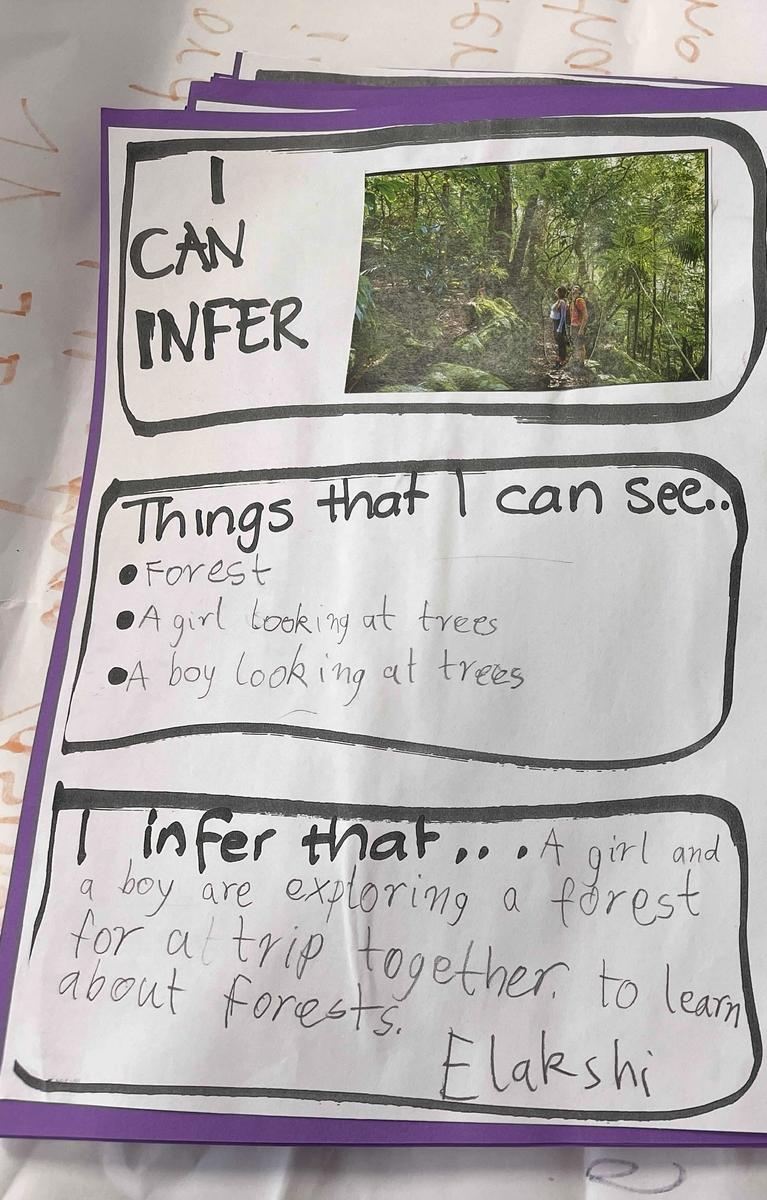 I
CAN
INFER
Things that I can see..
•Forest
•A girl looking at trees
•A boy looking at trees
I infer that... A girl and
a boy are exploring a forest
for a trip together. to learn
about forests.
Elakshi